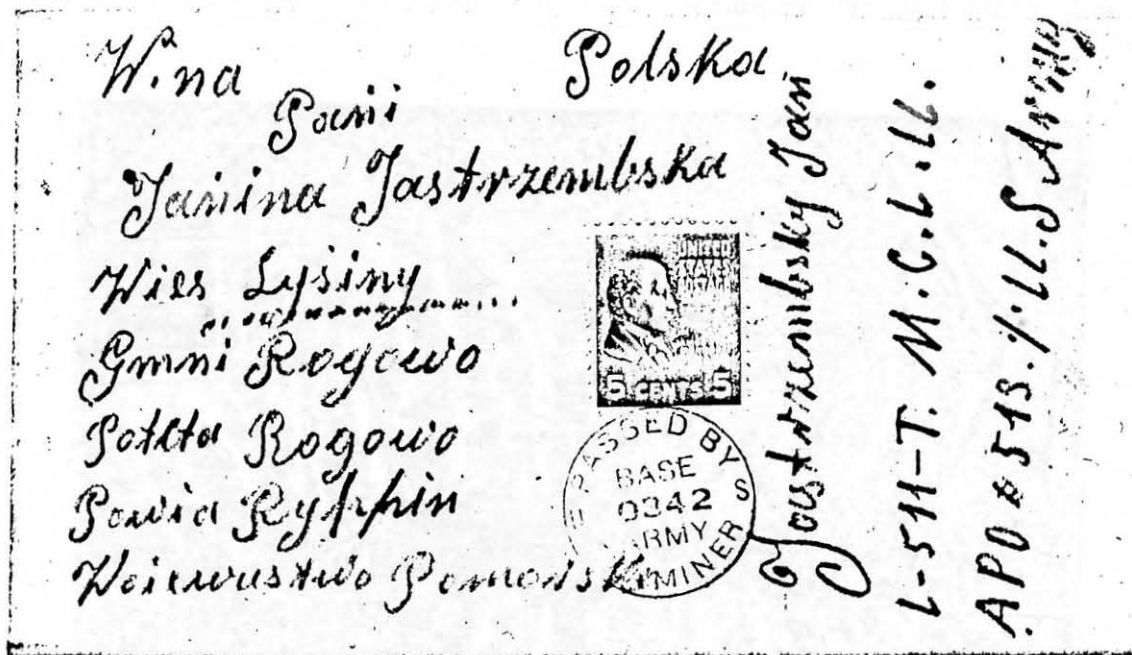 W. na Polska
Pani
Janina Jastrzembska
Wies Lysiny
Gmni Rogowo
Rogowo
Powia Ryppin
Woiewustwo
UNITED
STATES
5 CENTS 5
PASSED BY
BASE
0342
ARMY
EXAMINER S
Jastrzembskiy Jan
L-511-T. M.C.L.LL.
APO 513. %. LL.S Army